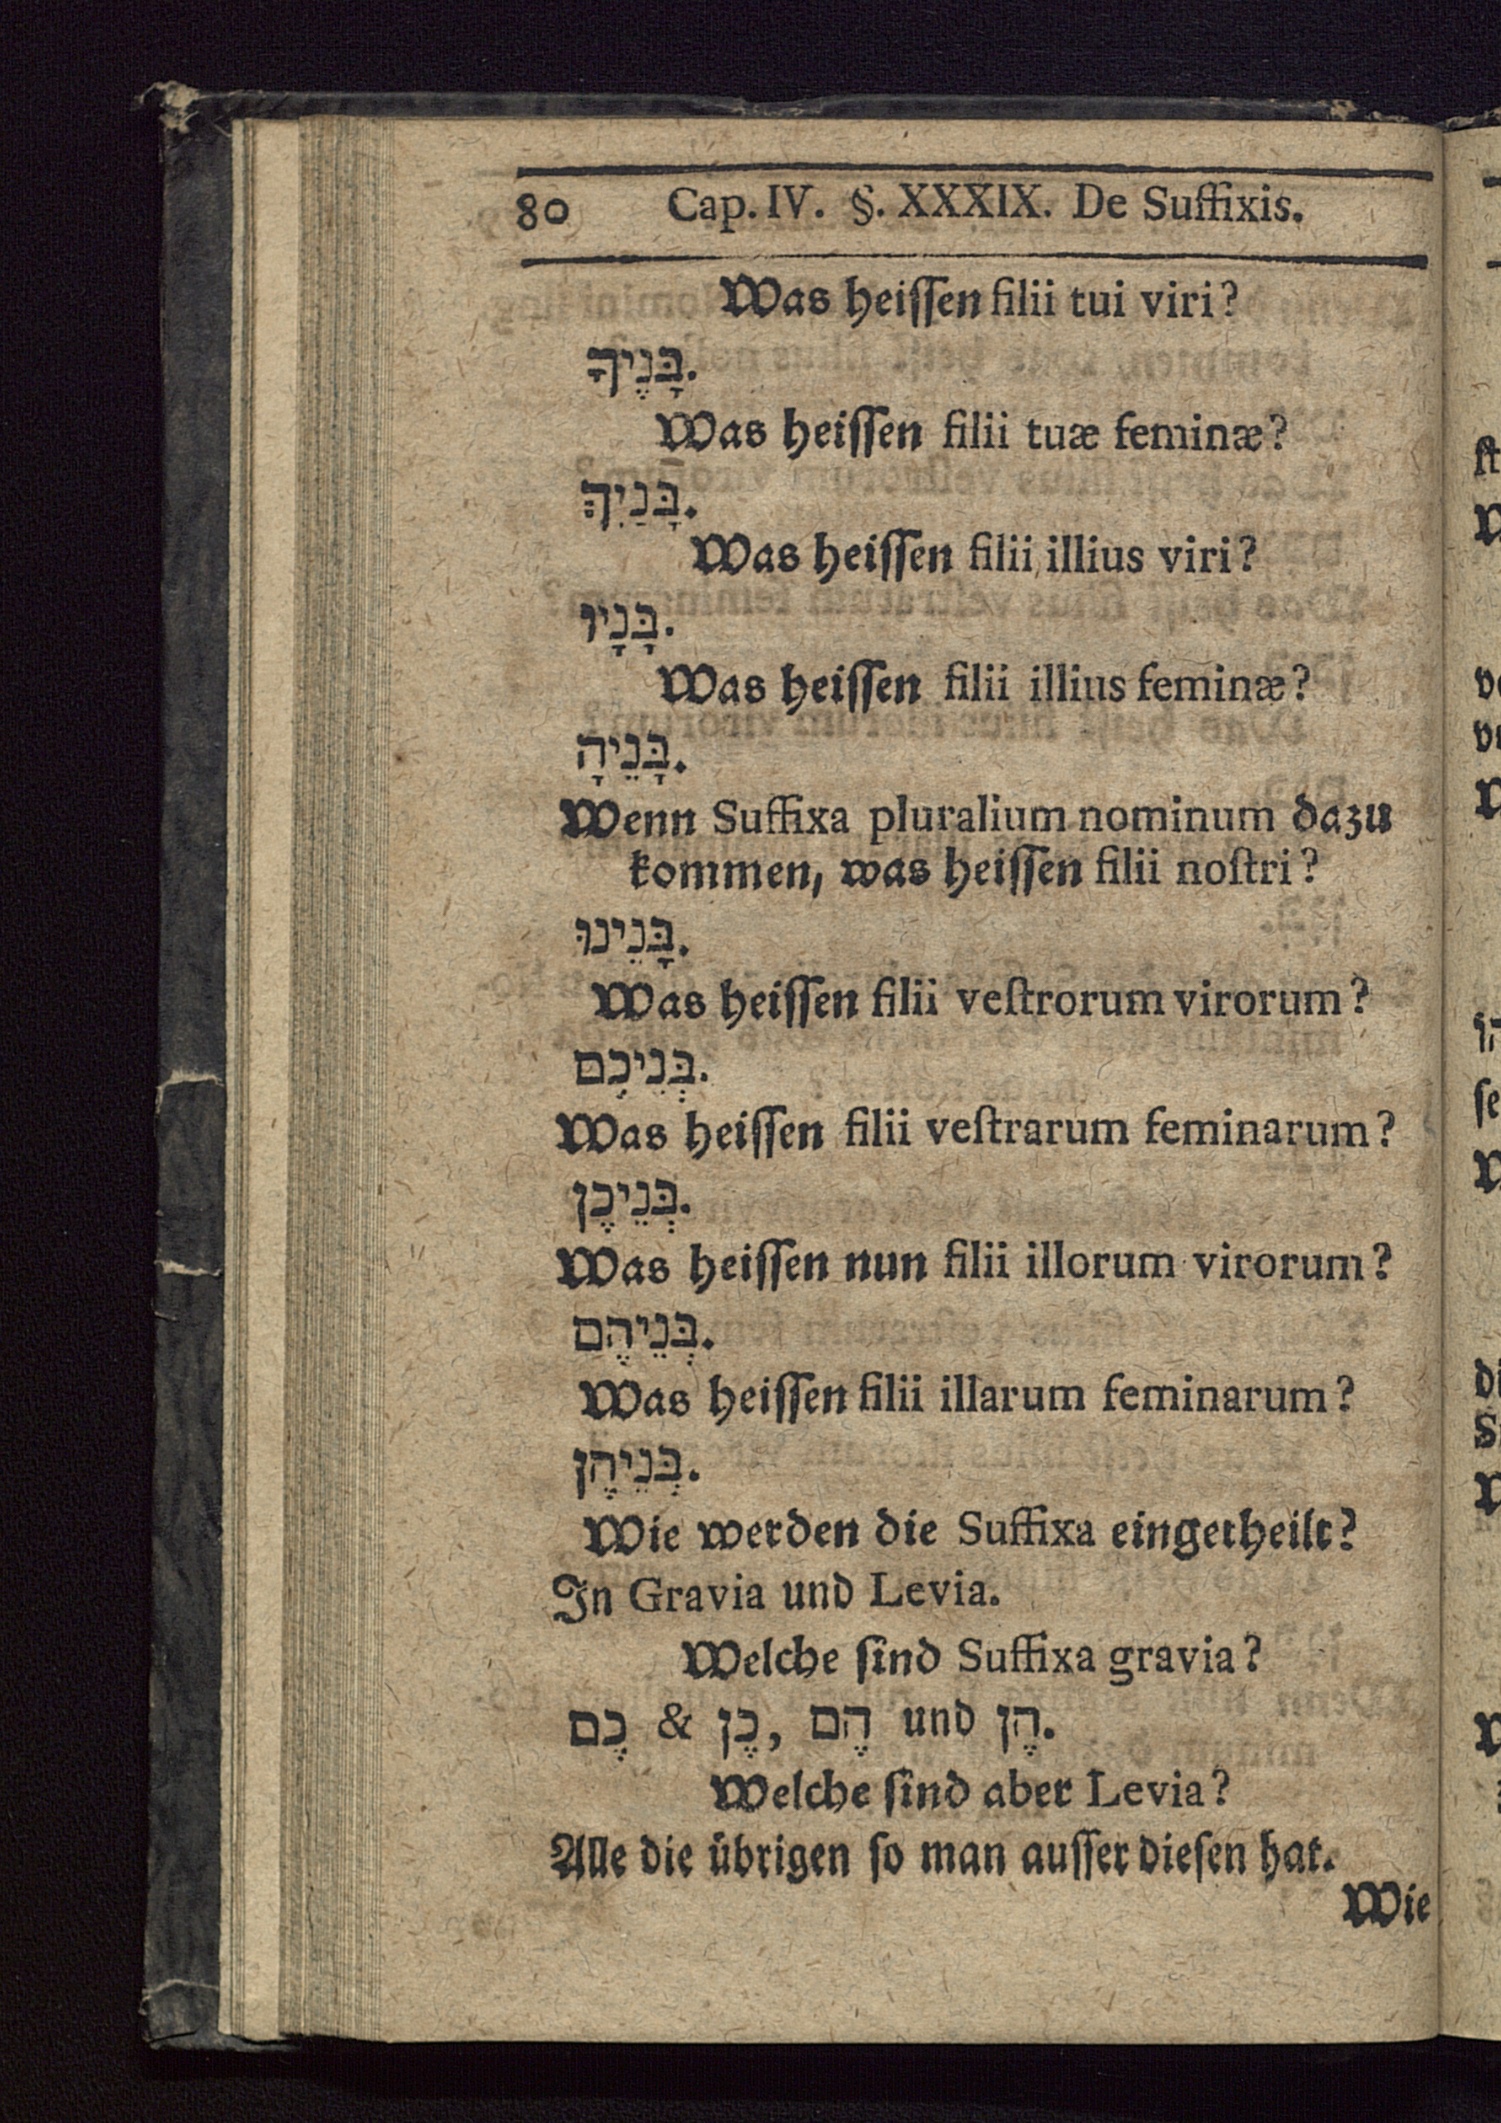 80 Cap. IV. §. XXXIX. De Suffixis.
Was heiſſen filii tui viri?
בָּנֶיךָ.
Was heiſſen filii tuæ feminæ?
בָּנַיִךְ.
Was heiſſen filii illius viri?
בָּנָיו.
Was heiſſen filii illius feminæ?
בָּנֵיהָ.
Wenn Suffixa pluralium nominum dazu
kommen, was heiſſen filii noſtri?
בָּנֵינוּ.
Was heiſſen filii veſtrorum virorum?
בְּנֵיכֶם.
Was heiſſen filii veſtrarum feminarum?
בְּנֵיכֶן.
Was heiſſen nun filii illorum virorum?
בְּנֵיהֶם.
Was heiſſen filii illarum feminarum?
בְּנֵיהֶן.
Wie werden die Suffixa eingetheilt?
In Gravia und Levia.
Welche ſind Suffixa gravia?
כֶם & כֶן, הֶם und הֶן.
Welche ſind aber Levia?
Alle die übrigen ſo man auſſer dieſen hat.
Wie